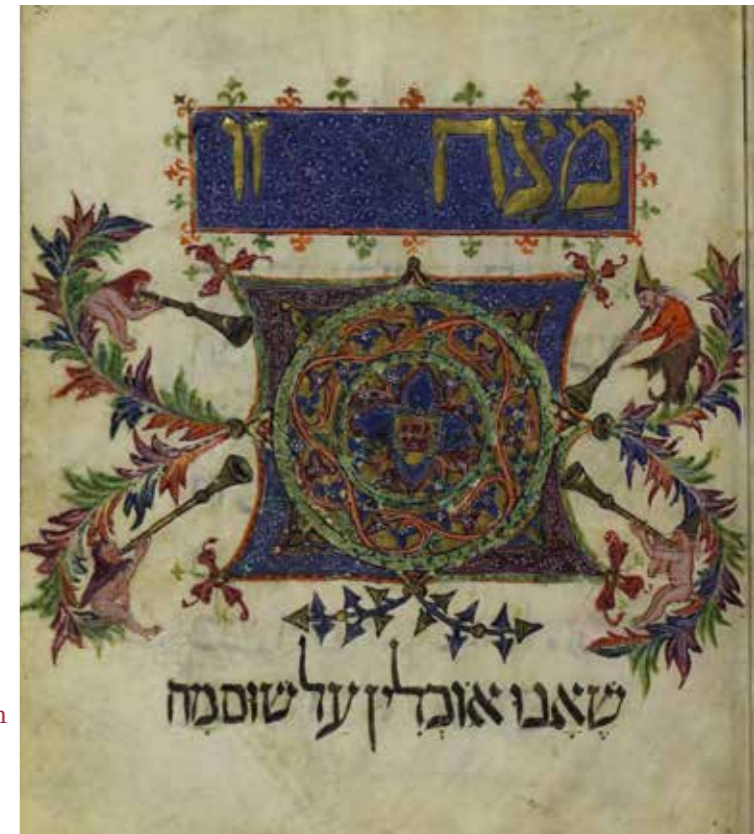 מַצָּה זוֹ
שֶׁאָנוּ אוֹכְלִין עַל שׁוּם מָה